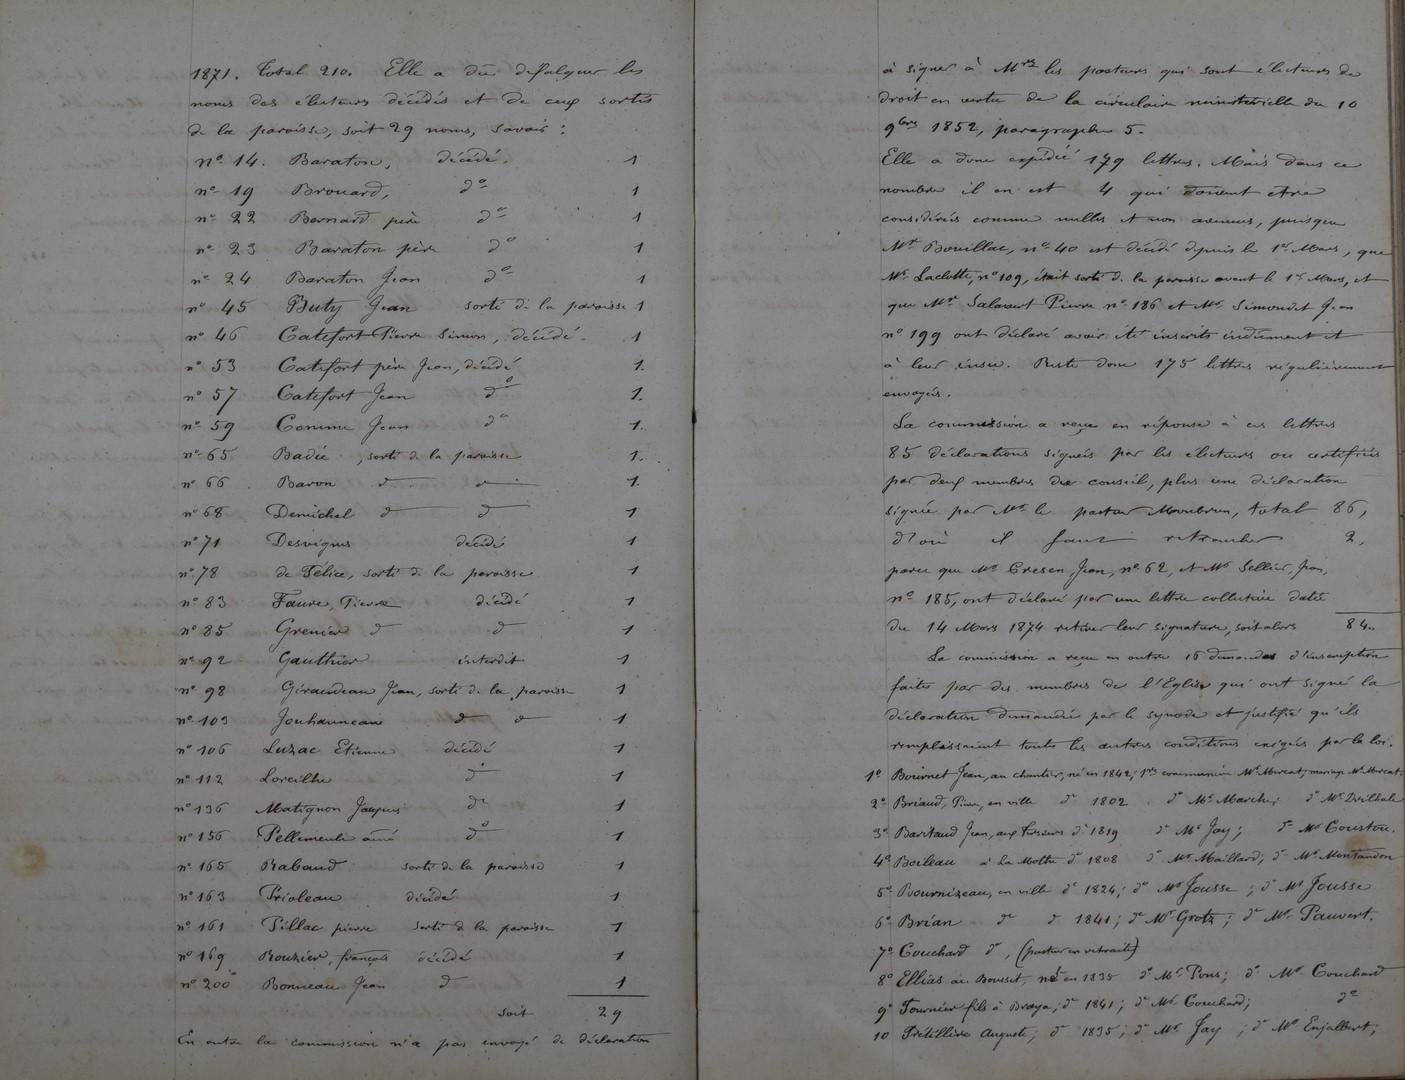 1871. Total 210. Elle a dû défalquer les
noms des électeurs décédés et de ceux sortis
de la paroisse, soit 29 noms, savoir :
n° 14. Baraton, décédé. 1
n° 19 Brouard, d° 1
n° 22 Bernard père d° 1
n° 23 Baraton père d° 1
n° 24 Baraton Jean d° 1
n° 45 Buty Jean sorti de la paroisse 1
n° 46 Catefort Pierre Simon, décédé. 1
n° 53 Catefort père Jean, décédé 1.
n° 57 Catefort Jean d° 1.
n° 59 Comme Jean d° 1.
n° 65 Badie, sorti de la paroisse 1.
n° 66. Baron d d 1.
n° 68 Demichel d d 1
n° 71 Desvignes décédé 1
n° 78 de Félice, sorti de la paroisse 1
n° 83 Faure, Pierre décédé 1
n° 85 Grenier d d 1
n° 92 Gauthier interdit 1
n° 98 Giraudeau Jean, sorti de la paroisse 1
n° 103 Jouhanneau d d 1
n° 106 Luzac Etienne décédé 1
n° 112 Loreilhe d° 1
n° 136 Matignon Jacques d° 1
n° 156 Pellemeule aîné d° 1
n° 165 Rabaud sorti de la paroisse 1
n° 163 Prioleau décédé 1
n° 161 Pillac pierre sorti de la paroisse 1
n° 169 Rouzier, françois décédé 1
n° 200 Bonneau Jean d 1
soit 29
En outre la commission n'a pas envoyé de déclaration
à signer à Mrs les pasteurs qui sont électeurs de
droit en vertu de la circulaire ministérielle du 10
9bre 1852, paragraphe 5.
Elle a donc expédié 179 lettres. Mais dans ce
nombre il en est 4 qui doivent être
considérées comme nulles et non avenues, puisque
Mr Bouillac, n° 40 est décédé depuis le 1er Mars, que
Mr Laclotte, n° 109, était sorti de la paroisse avant le 1er Mars, et
que Mr Salavert Pierre n° 186 et Mr Simondet Jean
n° 199 ont déclaré avoir été inscrits indûment et
à leur insu. Reste donc 175 lettres régulièrement
envoyées.
La commission a reçu en réponse à ces lettres
85 déclarations signées par les électeurs ou certifiées
par deux membres du conseil, plus une déclaration
signée par Mr le pasteur Monbrun, total 86,
d'où il faut retrancher 2,
parce que Mr Cresen, Jean, n° 62, et Mr Sellier, Jean,
n° 185, ont déclaré par une lettre collective datée
du 14 Mars 1874 retirer leur signature, soit alors 84.
La commission a reçu en outre 16 demandes d'inscription
faites par des membres de l'Eglise qui ont signé la
déclaration demandée par le synode et justifié qu'ils
remplissaient toutes les autres conditions exigées par la loi.
1° Bournet Jean, au chantier, né en 1842; 1re communion Mr Mercat; mariage Mr Mercat;
2° Briaud, Pierre, en ville d° 1802. d° Mr Marche; d° Mr Drilhole
3° Baritaud Jean, aux d° 1819 d° Mr Jay; d° Mr Couston.
4° Boileau à La Mothe d° 1808 d° Mr Maillard; d° Mr Montandon
5° Bournizeau, en ville d° 1824; d° Mr Jousse; d° Mr Jousse
6° Brian d° d 1841; d° Mr Grotz; d° Mr Pauvert.
7° Couchard d°, (pasteur en retraite)
8° Ellias au Bousset, né en 1835 d° Mr Pons; d° Mr Couchard
9° Fournier fils à Braya; d° 1841; d° Mr Couchard; d°
10 Pretillère Auguste; d° 1835; d° Mr Jay; d° Mr Enjalbert;